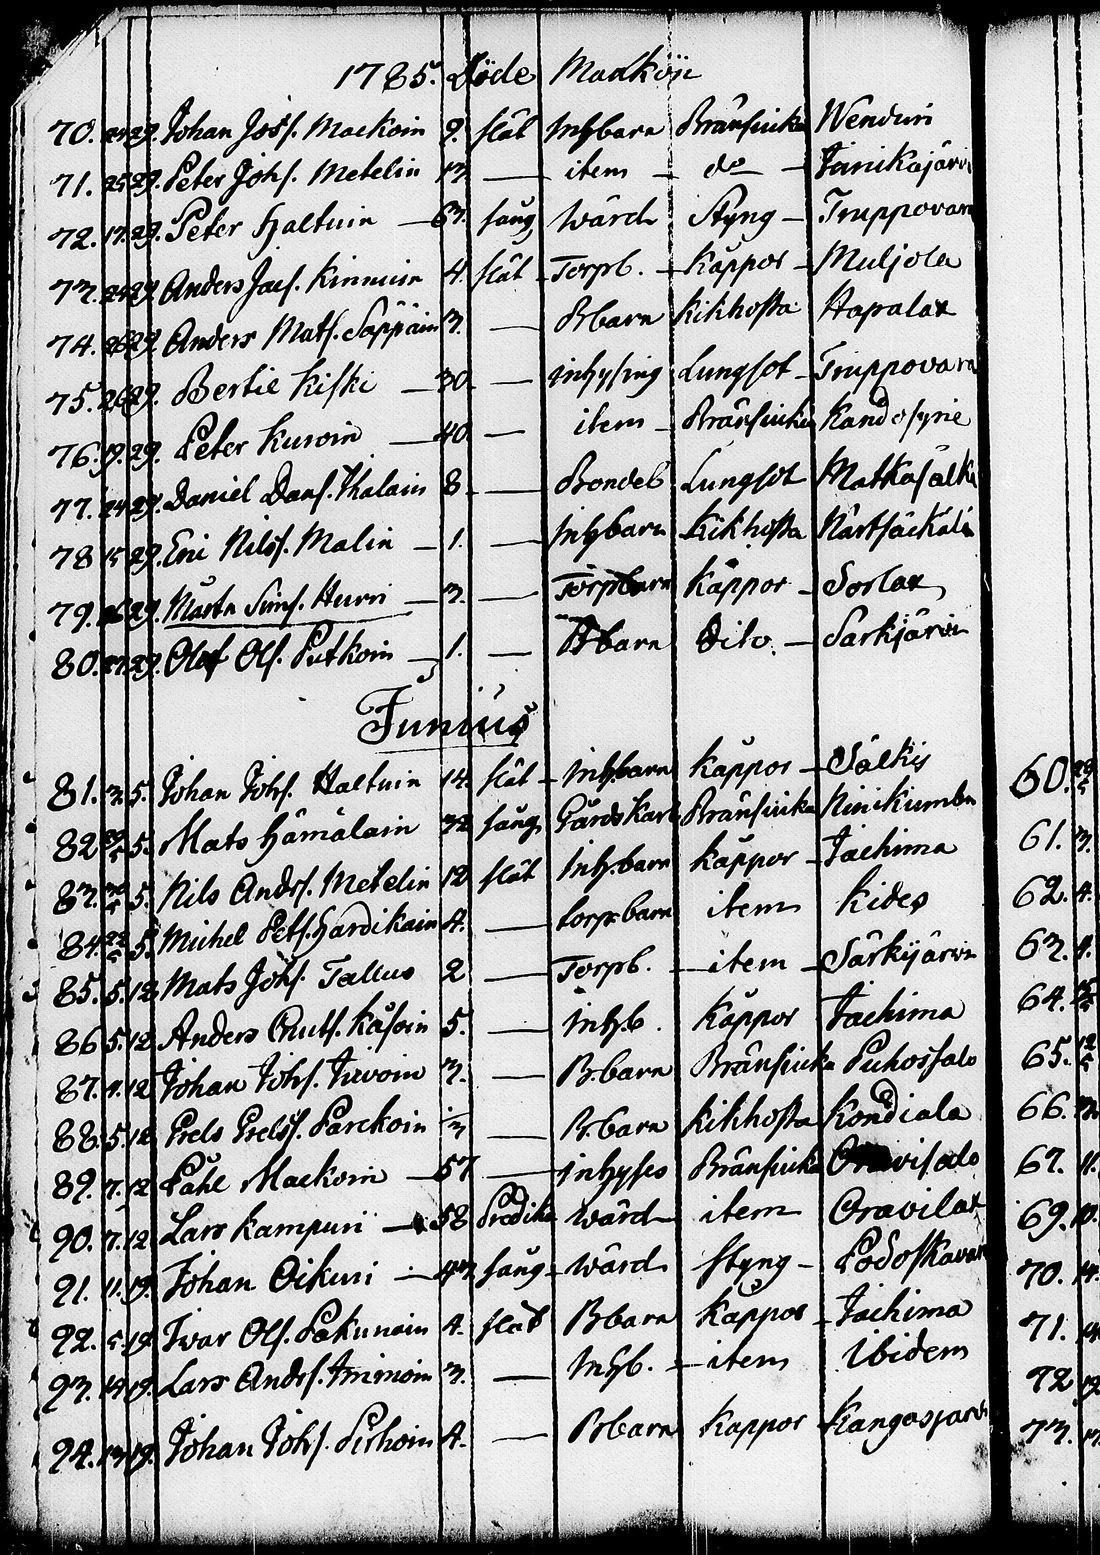 1785. Döde Mankön
70. 24 29. Johan Joss. Mackoin 9. slät Inhbarn Bränsiuka Wenduri
71. 25 29. Peter Johs. Metelin 13. — item — do — Jänikäjärvi
72. 17. 29. Peter Haltuin — 63. säng wärd Styng — Truppovara
73. 24 29. Anders Jacs. Kinnuin 4. slät Torpb. — Kåppor — Muljola
74. 26 29. Anders Mats. Såppäin 3. — Bbarn Kikhosta Hapalax
75. 26 29. Bertil Kiski — 30. — inhysing Lungsot — Truppovara
76. 19. 29. Peter Kuroin — 40. — item — Bränsiuka
77. 24 29. Daniel Dans. Ikalain 8. — Bondeb Lungsot Matkasälkä
78 15 29. Eric Nilss. Malin — 1. — Inhbarn Kikhosta
79. 26 29. Märta Sims. Hurri — 3. — Torpbarn Kåppor — Sorlax
80. 27. 29. Olof Ols. Putkoin — 1. — Bbarn Dito. — Särkjärvi
Junius
81. 3. 5. Johan Johs. Haltuin 14. slät — Inhbarn Kåppor — Sälkis
82 5. Mats Hämäläin 32 säng Gårdskarl Bränsiuka Ninikumbu
83. 5. Nils Ands. Metelin 12 slät Inh.barn Kåppor — Jachima
84. 5. Michel Pets. Hardikain 4. — torpbarn item Kides
85. 5. 12. Mats Johs. Tallus 2 — Torpb. — item — Särkijärvi
86 5. 12 Anders Knuts. Käsoin 5. — Inh.b. Kåppor Jachima
87. 4. 12 Johan Johs. Turvoin 3. — B.barn Bränsiuka Puhossalo
88. 5. 12 Prels Prelss. Parckoin — B.barn Kikhosta Kondiala
89. 7. 12 Påhl Mackoin — 57 — inhyses Bränsiuka Oravisalo
90. 7. 12 Lars Kampuri — 58 wärd — item Oravilax
91. 11. 19. Johan Oikuri — 43 säng — wärd Styng — Podoskavara
92. 5. 19. Ivar Ols. Pakunain 4. slät Bbarn Kåppor — Jachima
93. 14 19. Lars Ands. Immoin 3. — Inhb. — item Ibidem
94. 13 19. Johan Johs. Pirhoin 4. — Bbarn Kåppor Kangasjärvi
60.
61. 3.
62. 4.
63. 4.
64.
65. 12
66.
67. 11.
69. 10.
70. 14.
71.
72
73.